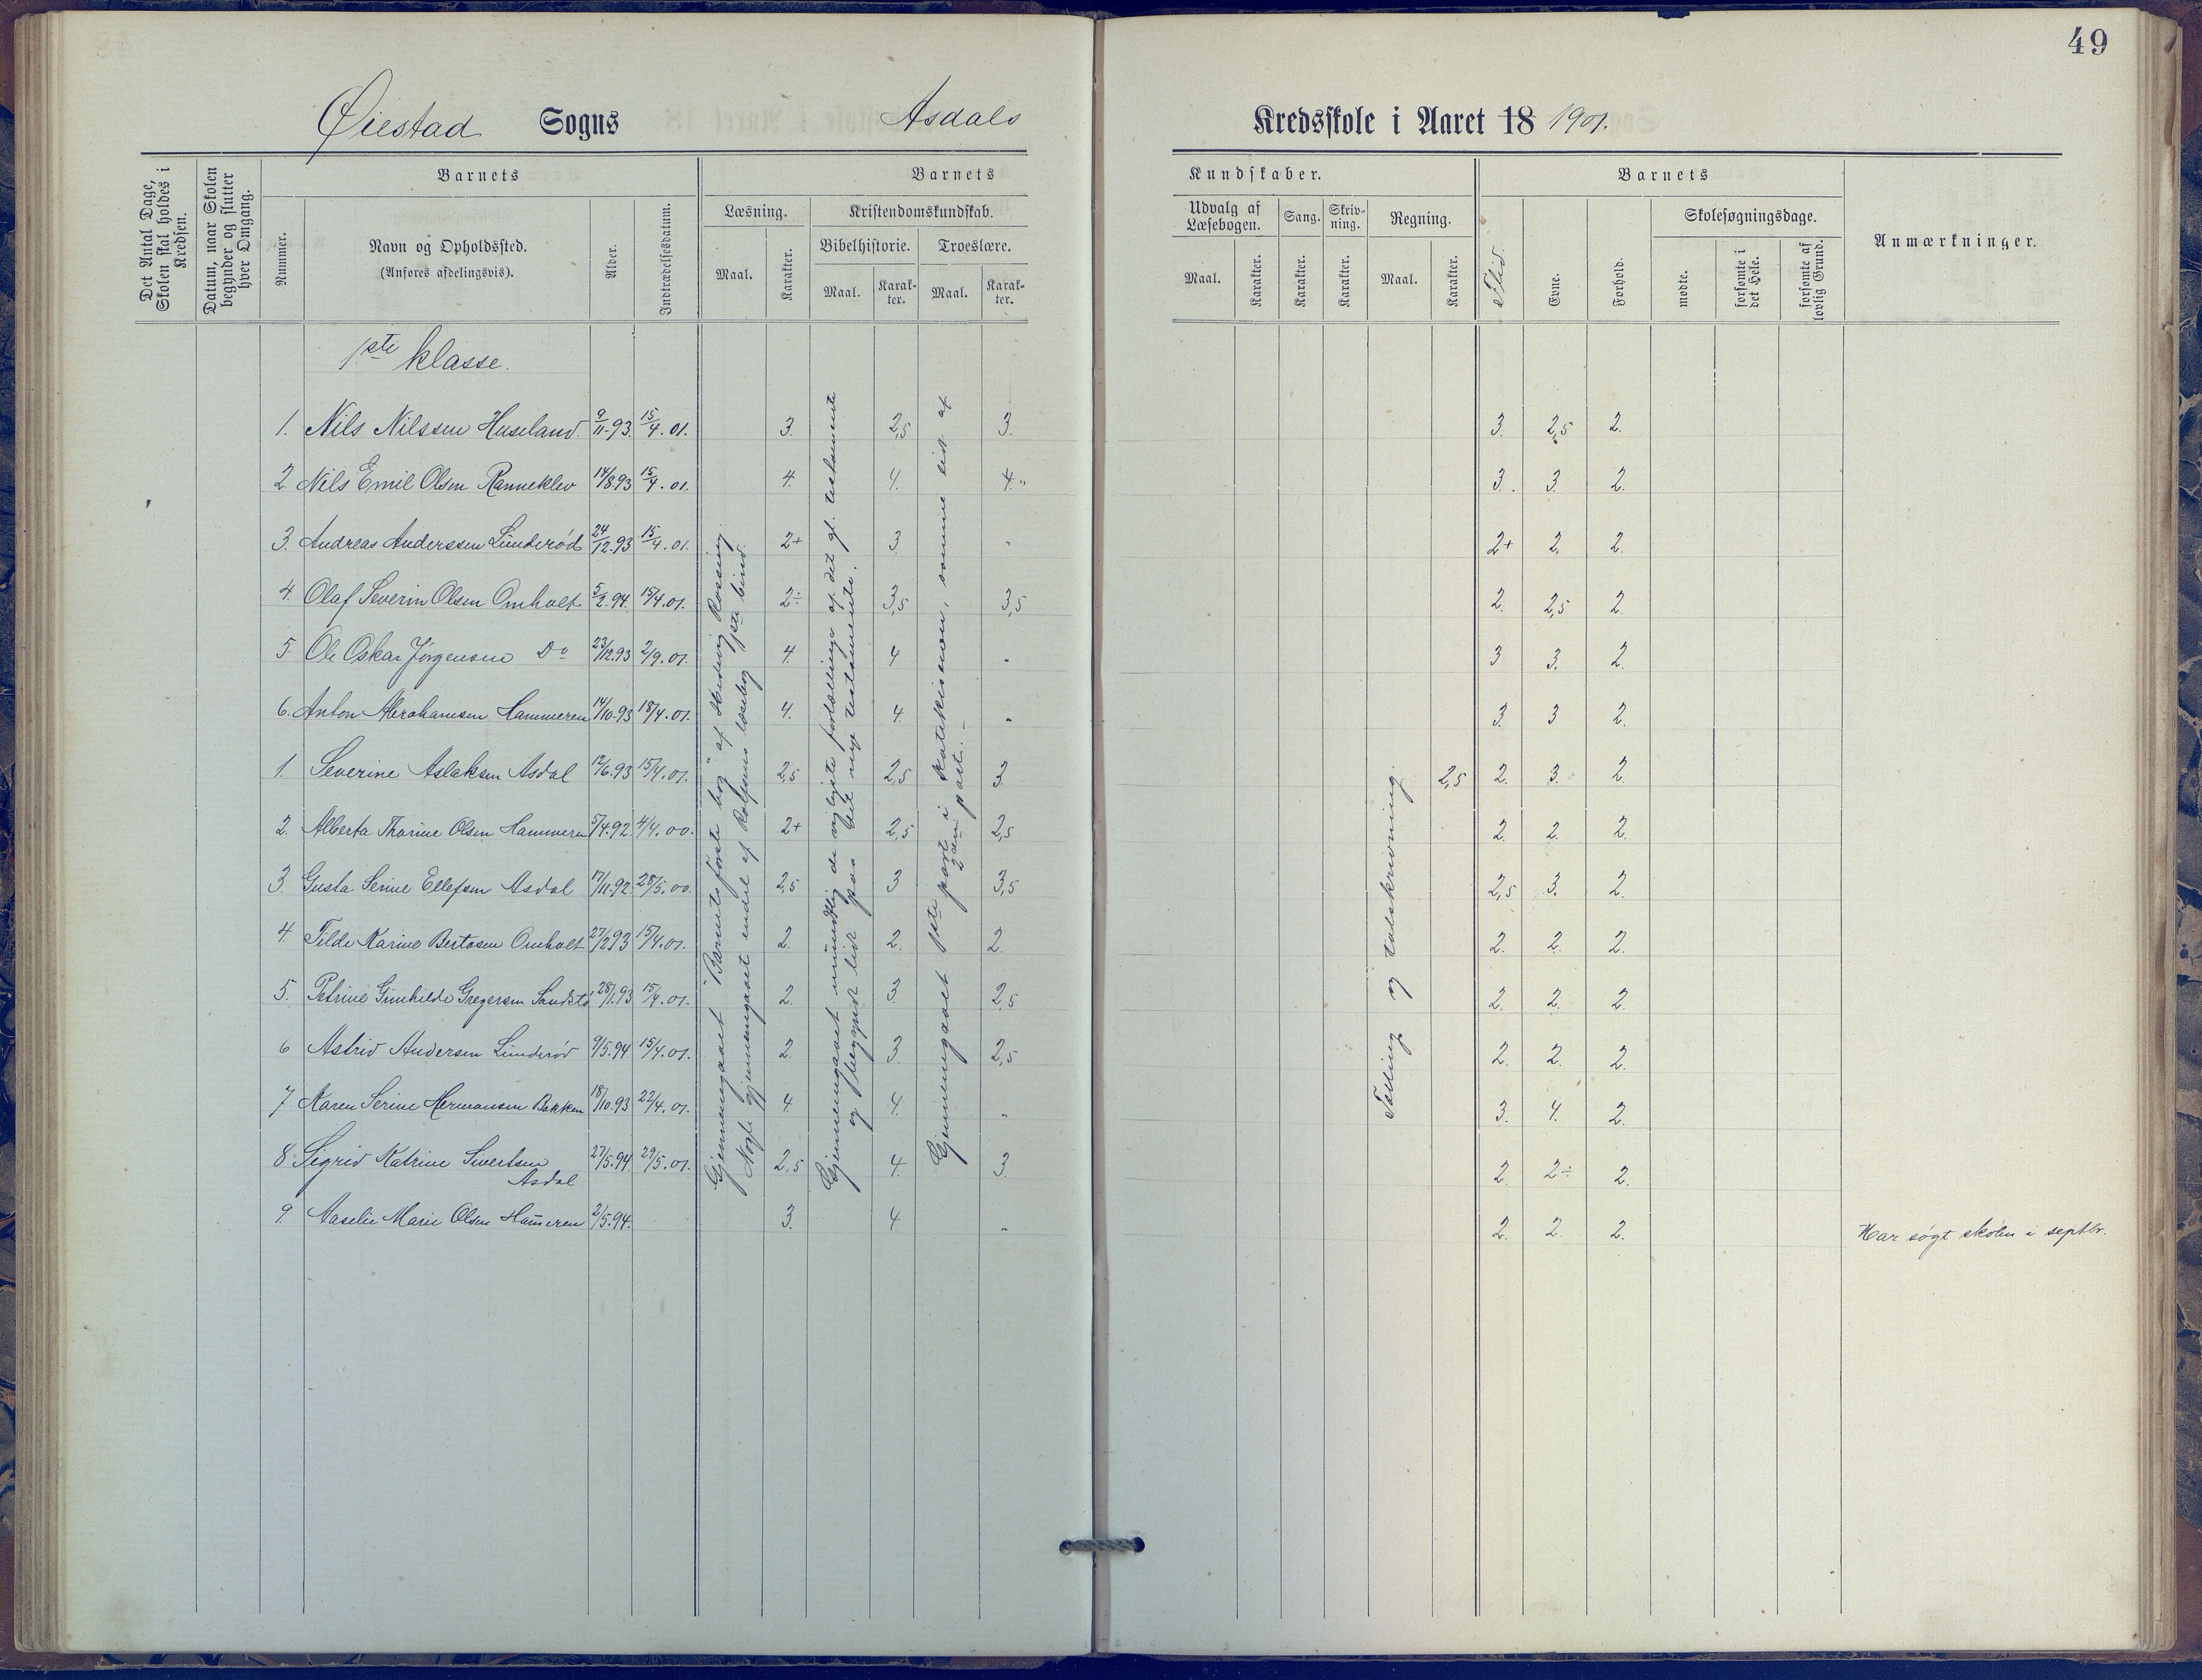 49
Øiestad Sogns Asdals Kredsskole i Aaret 18 1901.
Det Antal Dage, Skolen skal holdes i Kredsen.
Datum, naar Skolen begynder og slutter hver Omgang.
Barnets
Nummer.
Navn og Opholdssted.
(Anføres afdelingsvis).
Alder.
Indtrædelsesdatum.
Barnets
Læsning.
Maal.
Karakter.
Kristendomskundskab.
Bibelhistorie.
Maal.
Karakter.
Troeslære.
Maal.
Karakter.
Kundskaber.
Udvalg af Læsebogen.
Maal.
Karakter.
Sang.
Karakter.
Skrivning.
Karakter.
Regning.
Maal.
Karakter.
Barnets
Flid.
Evne.
Forhold.
Skolesøgningsdage.
mødte.
forsømte i det Hele.
forsømte af lovlig Grund.
Anmærkninger.
1ste klasse.
1. Nils Nilssen Huseland. 9/11-93. 15/4.01. 3. 2,5 3. 3. 2,5 2.
2. Nils Emil Olsen Ranneklev 14/8.93 15/4.01. 4. 4. 4." 3. 3. 2.
3. Andreas Anderssen Lunderød 24/12.93 15/4.01. 2+ 3. " 2+ 2. 2.
4. Olaf Severin Olsen Omholt 5/2.94. 15/4.01. 2÷ 3,5 3,5 2. 2,5 2.
5. Ole Oskar Jørgensen Do 23/12.93 2/9.01. 4. 4 " 3 3. 2.
6. Anton Abrahamsen Hammeren 14/10.93 18/4.01. 4. 4. " 3. 3 2.
1. Severine Aslaksen Asdal 12/6.93 15/4.01. 2,5 2,5 3 2,5 2. 3. 2.
2. Alberta Thorine Olsen Hammeren 5/4.92. 4/4.00. 2+ 2,5 2,5 2. 2. 2.
3. Gusta Serine Ellefsen Asdal 17/11.92. 28/5.00. 2,5 3 3,5 2,5 3. 2.
4. Tilde Karine Bertosen Omholt 27/2.93 15/4.01. 2. 2. 2. 2. 2. 2.
5. Petrine Gunhilde Gregersen Sandstø 28/1.93 15/4.01. 2. 3. 2,5 2. 2. 2.
6 Astrid Andersen Lunderød 9/5.94 15/4.01. 2. 3. 2,5 2. 2. 2.
7 Karen Serine Hermansen Bakken 18/10.93 22/4.01. 4. 4. " 3. 4. 2.
8 Sigrid Katrine Sivertsen 27/5.94 29/5.01. 2,5 4. 3. 2. 2÷ 2.
Asdal
9. Aaselie Marie Olsen Hameren 2/5.94. 3. 4 " 2. 2. 2. Har søgt skolen i septbr.
Gjennemgaaet "Barnets første bog" af Hedevig Rossing
Nogle gjennemgaaet endel af Rolfsens læsebog 1ste bind.
Gjennemgaaet mundtlig de vigtigste fortællinger af det gl. testamente
og begyndt lidt paa det nye testamente.
Gjennemgaaet 1ste part i katekismen, somme lidt af
2den part.
Tælling og talskrivning.